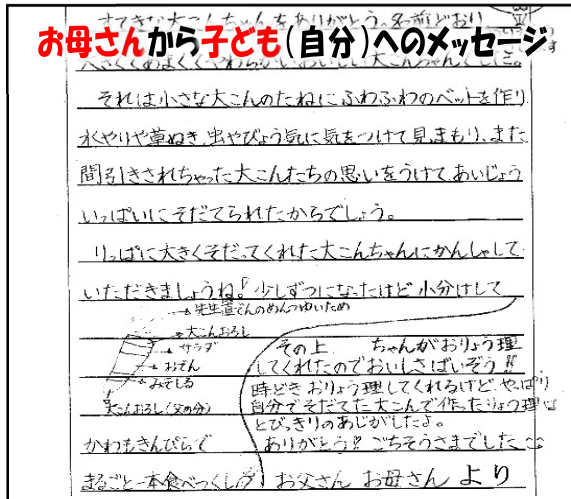 すてきな大こんちゃんをありがとう。名前どおり
お母さんから子ども(自分)へのメッセージ
大きくてあまくてやわらかいおいしい大こんちゃんでした。
それは小さな大こんのたねにふわふわのベットを作り
水やりや草ぬき、虫やびょう気に気をつけて見まもり、また
間引きされちゃった大こんたちの思いをうけて、あいじょう
いっぱいにそだてられたからでしょう。
りっぱに大きくそだってくれた大こんちゃんにかんしゃして
いただきましょうね!少しずつになったけど小分けして
→先生直でんのめんつゆいため
→大こんおろし
→サラダ
→おでん
→みそしる
大こんおろし(父の分)
かわもきんぴらで
まるごと一本食べつくし
その上 ちゃんがおりょう理
してくれたのでおいしさばいぞう!!
時どきおりょう理してくれるけど、やっぱり
自分でそだてた大こんで作ったりょう理は
とびっきりのあじがしたよ。
ありがとう!ごちそうさまでした
お父さん お母さん より